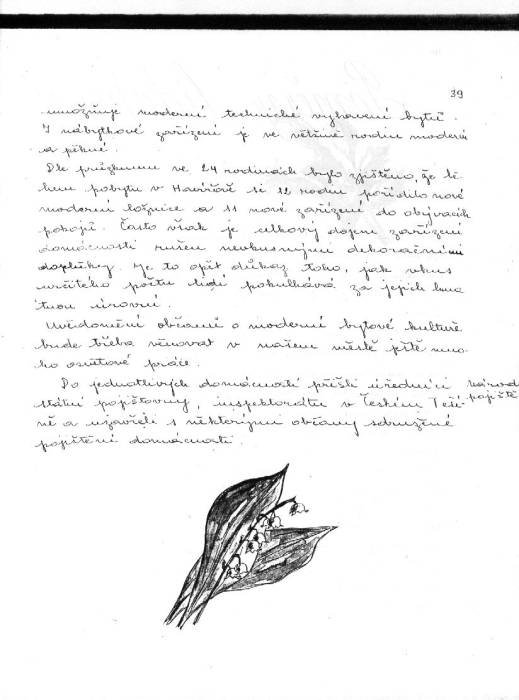 39
umožňuje moderní technické vybavení bytů.
I nábytkové zařízení je ve většině rodin moderní
a pěkné.
Dle průzkumu ve 24 rodinách bylo zjištěno, že bě-
hem pobytu v Havířově si 12 rodin pořídilo nové
moderní ložnice a 11 nové zařízení do obývacích
pokojů. Často však je celkový dojem zařízení
domácnosti rušen nevkusnými dekoračními
doplňky. Je to opět důkaz toho, jak vkus
určitého počtu lidí pokulhává za jejich hmo-
tnou úrovní.
Uvědomění občanů o moderní bytové kultuře
bude třeba věnovat v našem městě ještě mno-
ho osvětové práce.
Do jednotlivých domácností přišli úředníci
státní pojišťovny, inspektorátu v Českém Těší-
ně a uzavřeli s některými občany sdružené
pojištění domácností.
pojiště